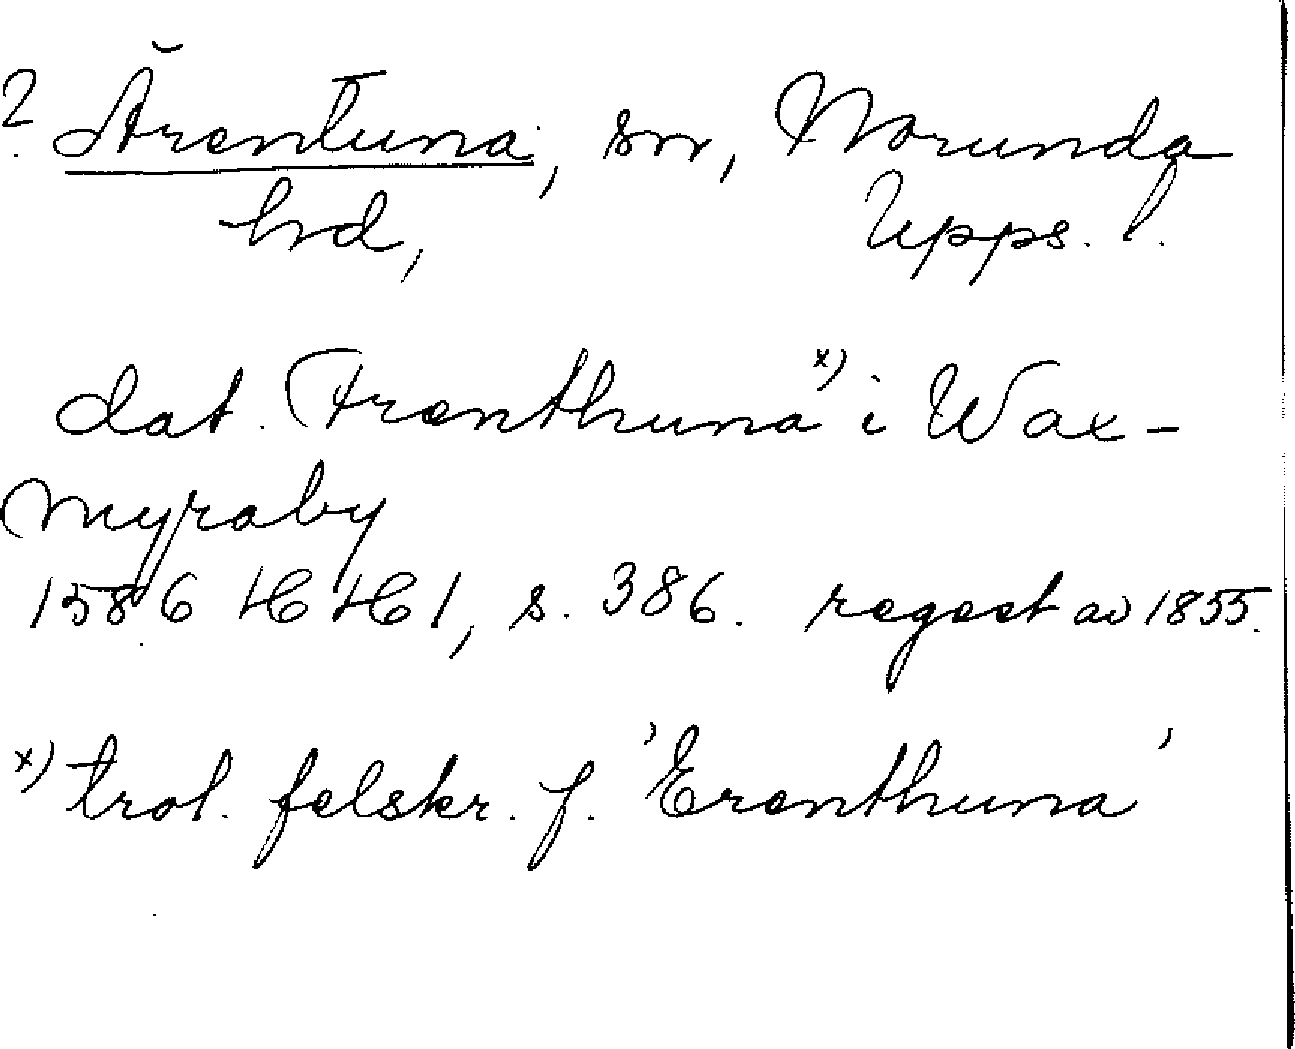 ? Ärentuna, sn, Norunda
hd, Upps. l.
dat. Frenthuna x) i Wax-
myraby
1586 HH 1, s. 386. regest av 1855.
x) trol. felskr. f. 'Erenthuna'